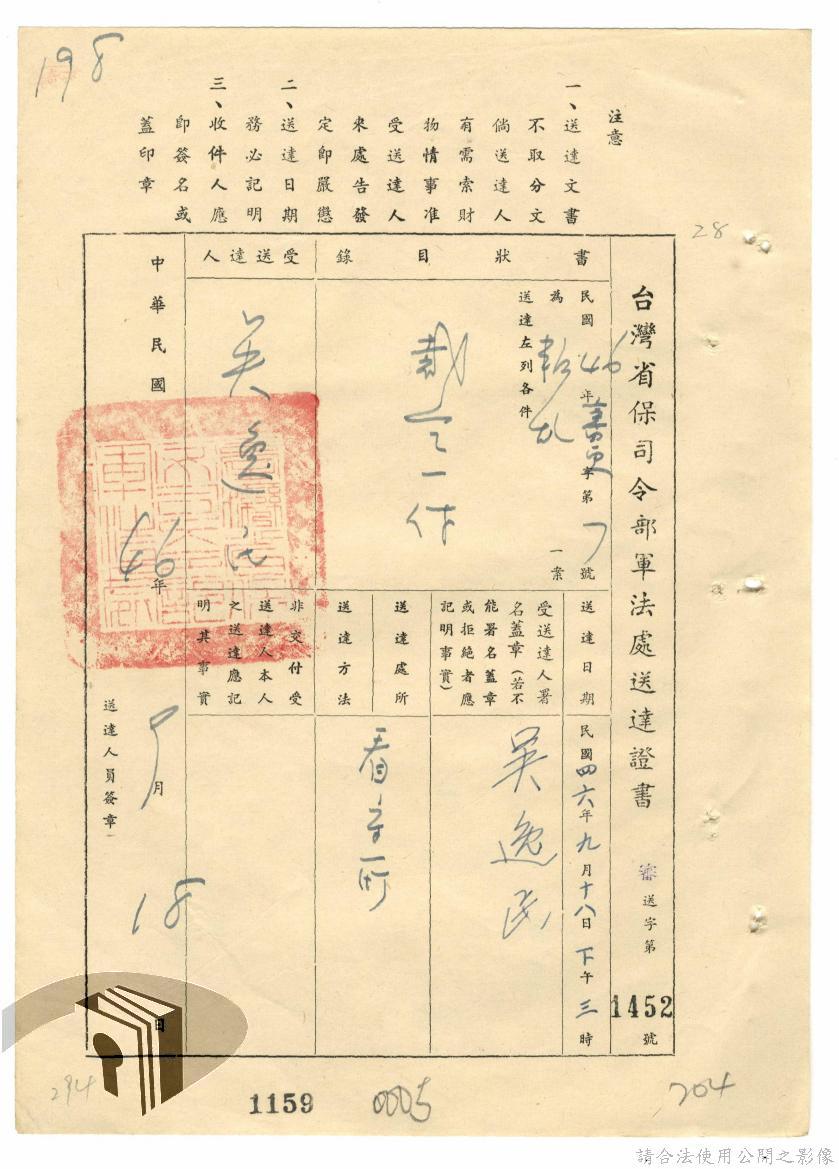 198
注意
一、送達文書
不取分文
倘送達人
有需索財
物情事准
受送達人
來處告發
定即嚴懲
二、送達日期
務必記明
三、收件人應
即簽名或
蓋印章
28
台灣省保司令部軍法處送達證書 審送字第1452號
書狀目錄
民國46年審更字第7號
為叛乱一案
送達左列各件
裁定一件
受送達人
吳逸民
送達日期
民國四六年九月十八日下午三時
受送達人署
名蓋章(若不
能署名蓋章
或拒絕者應
記明事實)
吳逸民
送達處所
看守所
送達方法
非交付受
送達人本人
之送達應記
明其事實
中華民國46年9月18日
送達人員簽章
294
1159
0005
204
請合法使用公開之影像